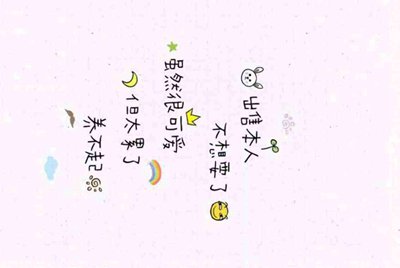 出售本人
不想要了
虽然很可爱
但太累了
养不起